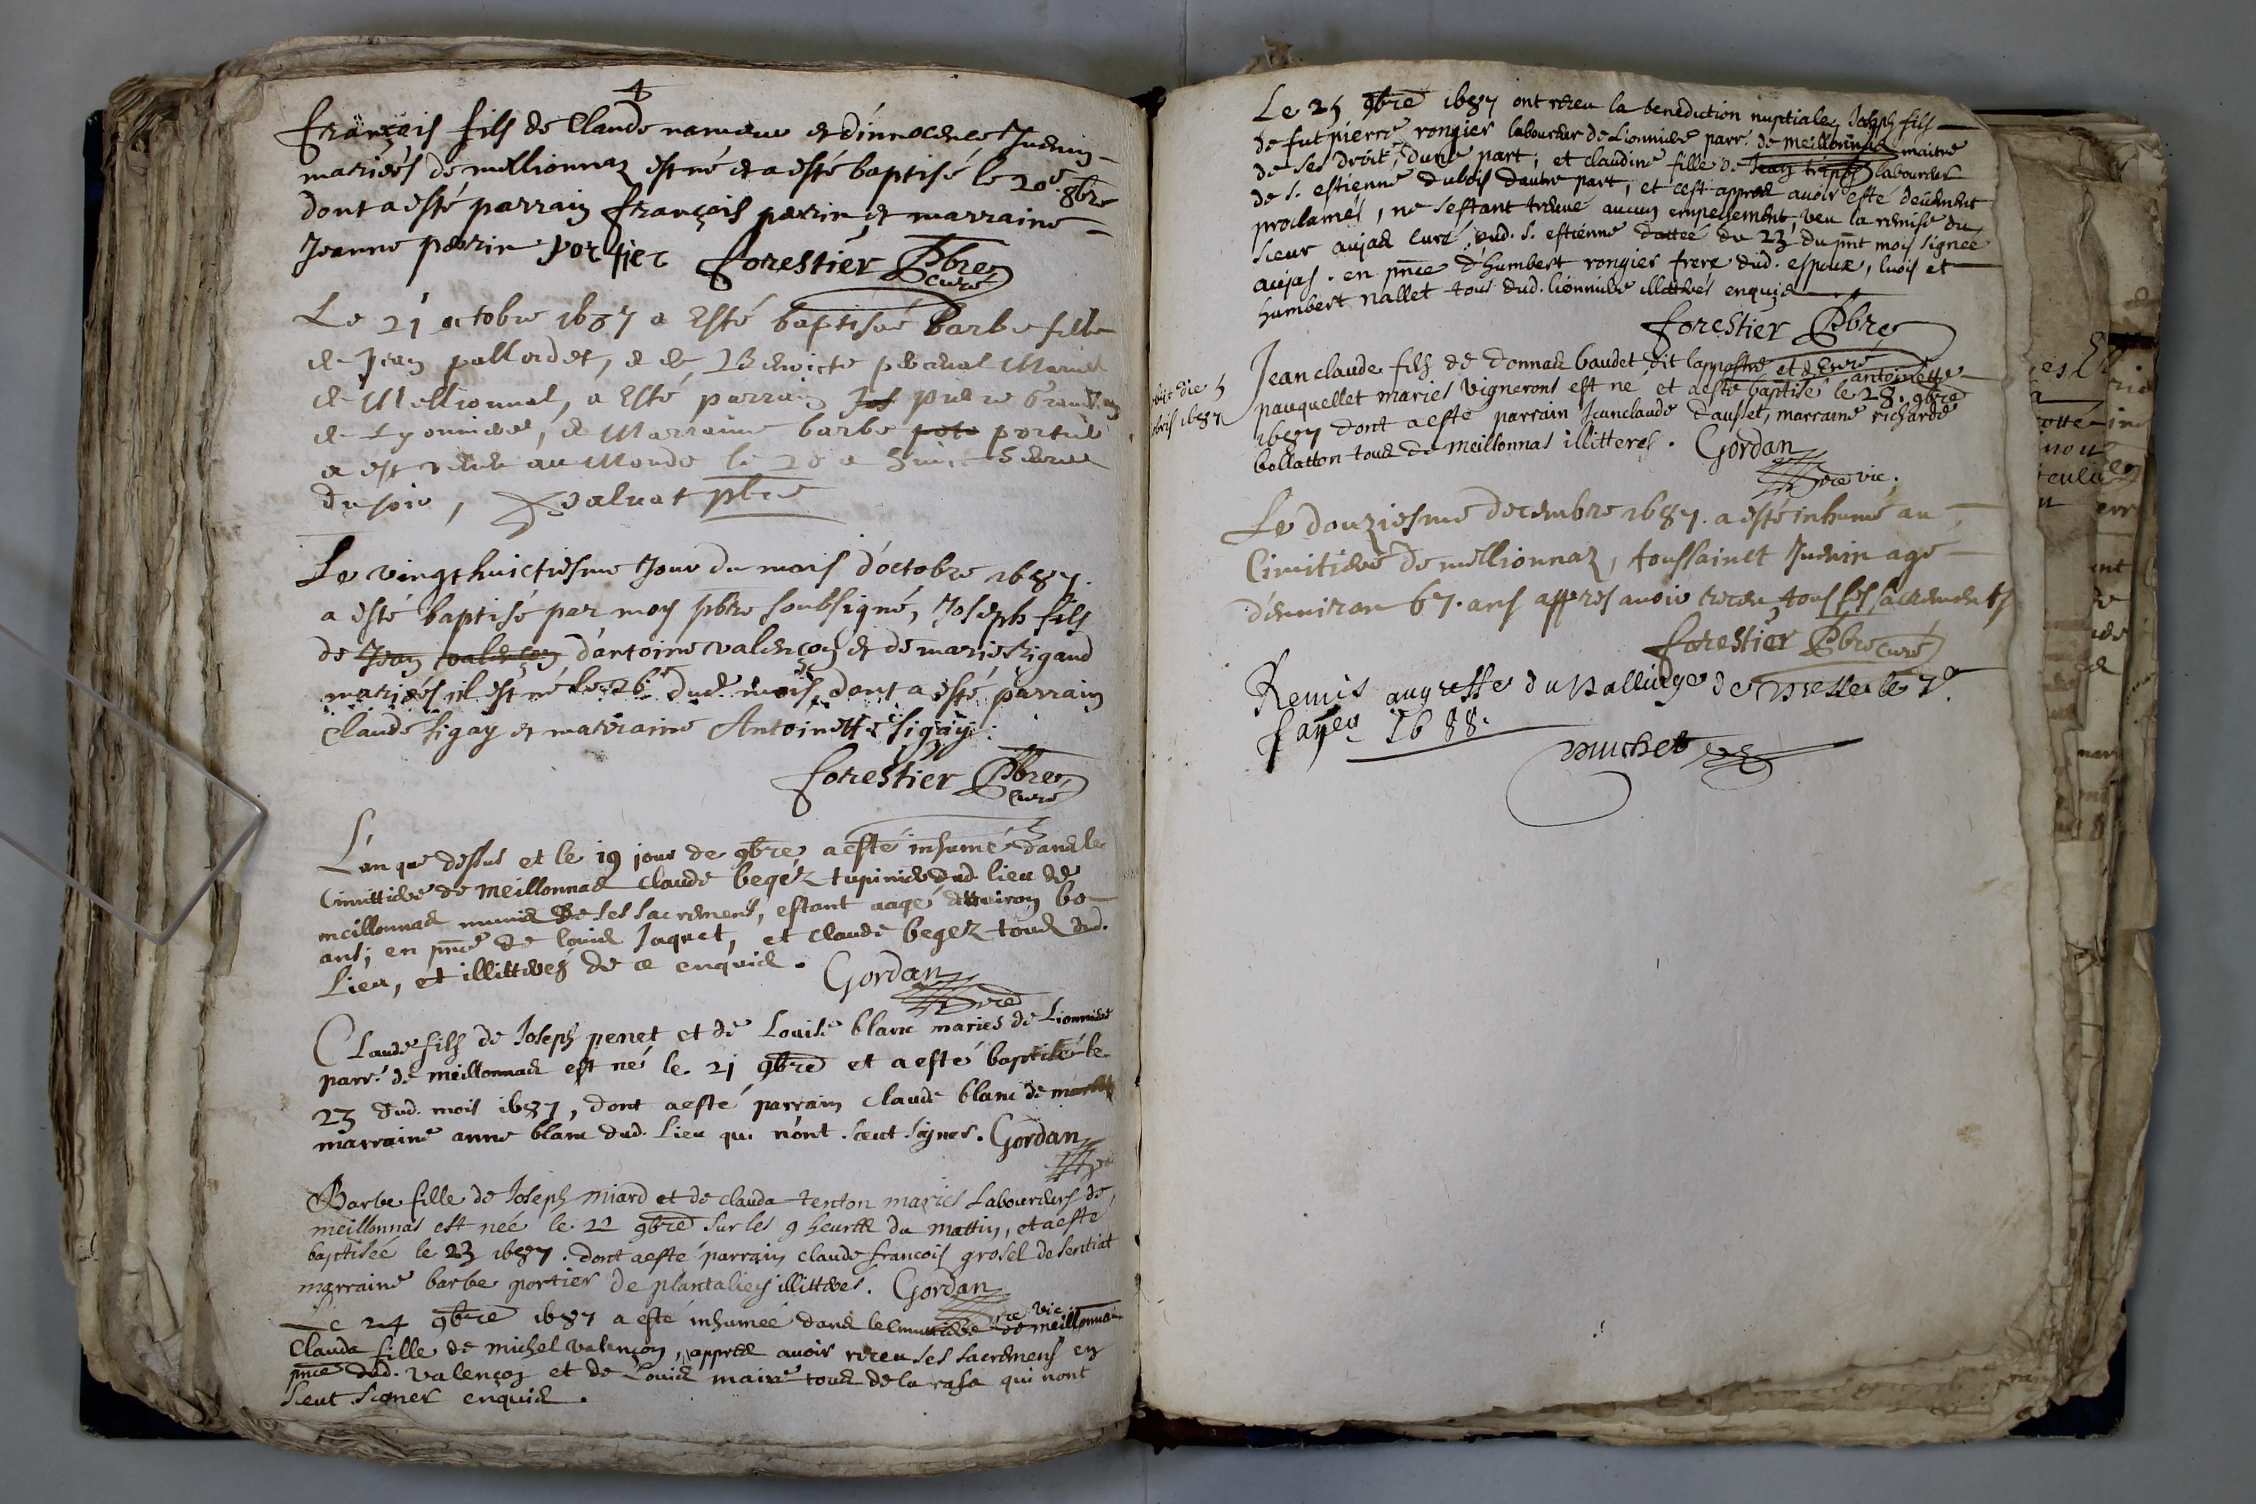 4
François fils de Claude rameau et d'innocence Juenin
mariés de mellionnaz est né et a esté baptisé le 20e 8bre
dont a esté parrain françois perrin et marraine
Jeanne perrin portier forestier Pbre
Curé
Le 21 octobre 1687 a Esté baptisée barbe fille
de Jean pallordet, & de Benoiste Mariés
de Mellionnal, a Esté parrain pierre
de Lyonniere, & Marraine barbe portier
a est venue au Monde le 20 a huict heures
du soir, pbre
Le vingt huictiesme Jour du mois d'octobre 1687.
a esté baptisé par moy pbre soubsigné, Joseph fils
de Jean valençon d'antoine valençon et de marie Rigaud
mariés il est né le 26e dud. mois, dont a esté parrain
Claude sigay et marraine Antoinette sigay
forestier Pbre
Curé
L'an que dessus et le 19 jour de 9bre a esté inhumé dans le
Cimittiere de meillonnas Claude begéz tupinier dud. lieu de
meillonnas munis de ses sacremens, estant aagé d'environ 60
ans; en pnce de louis Jaquet, et Claude begez tous dud.
Lieu, et illitteres de ce enquis. Gordan
Claude fils de Joseph penet et de Louise blanc maries de Lionniere
parr. de meillonnas est né le 21 9bre et a esté baptisé le
23 dud. mois 1687, dont a esté parrain Claude blanc de
marraine anne blanc dud. Lieu qui n'ont sceut signer. Gordan
Barbe fille de Joseph miard et de clauda tenton maries Laboureurs de
meillonnas est née le 22 9bre sur les 9 heures du mattin, et a esté
baptisée le 23 1687. dont a esté parrain Claude francois grosel de sentiat
marraine barbe portier de plantaliers illitteres. Gordan
vic.
Le 24 9bre 1687 a esté inhumée dans le Cimittiere de meillonnas
Clauda fille de michel valençon, appres avoir receu ses sacremens en
pnce dud. valençon et de Louis maire tous de la rasa qui nont
sceut signer enquis.
Le 25 9bre 1687 ont receu la benediction nuptiale, Joseph fils
de fut pierre rongier laboureur de Lionniere parr. de meillonnas maitre
de ses droit, d'une part; et claudine fille de laboureur
de s. estienne dubois d'autre part, et cest appres avoir esté deüement
proclamés, ne s'estant treuvé aucun empechement, veu la remise du
sieur aujas curé dud. s. estienne dattée du 23 du pnt mois signée
aujas. en pnce d'humbert rongier frere dud. espoux, lois et
humbert nallet tous dud. lionniere illitteres enquis
forestier Pbre
et Curé
Jean claude fils de donnas baudet dit antoinette
pauquellet maries vignerons est ne et a esté baptisé le 28. 9bre
1687 dont a esté parrain Jeanclaude dausset, marraine richarde
bollatton tous de meillonnas illitteres. Gordan
vic.
die 5
1687
Le douziesme decembre 1687. a esté inhumé au
Cimitiere de mellionnaz, toussainct Juenin agé
d'environ 67. ans appres avoir receu tous ses sacrements
forestier Pbre Curé
Remis au greffe du Balliage de Bresse le 7e
Janer 1688.